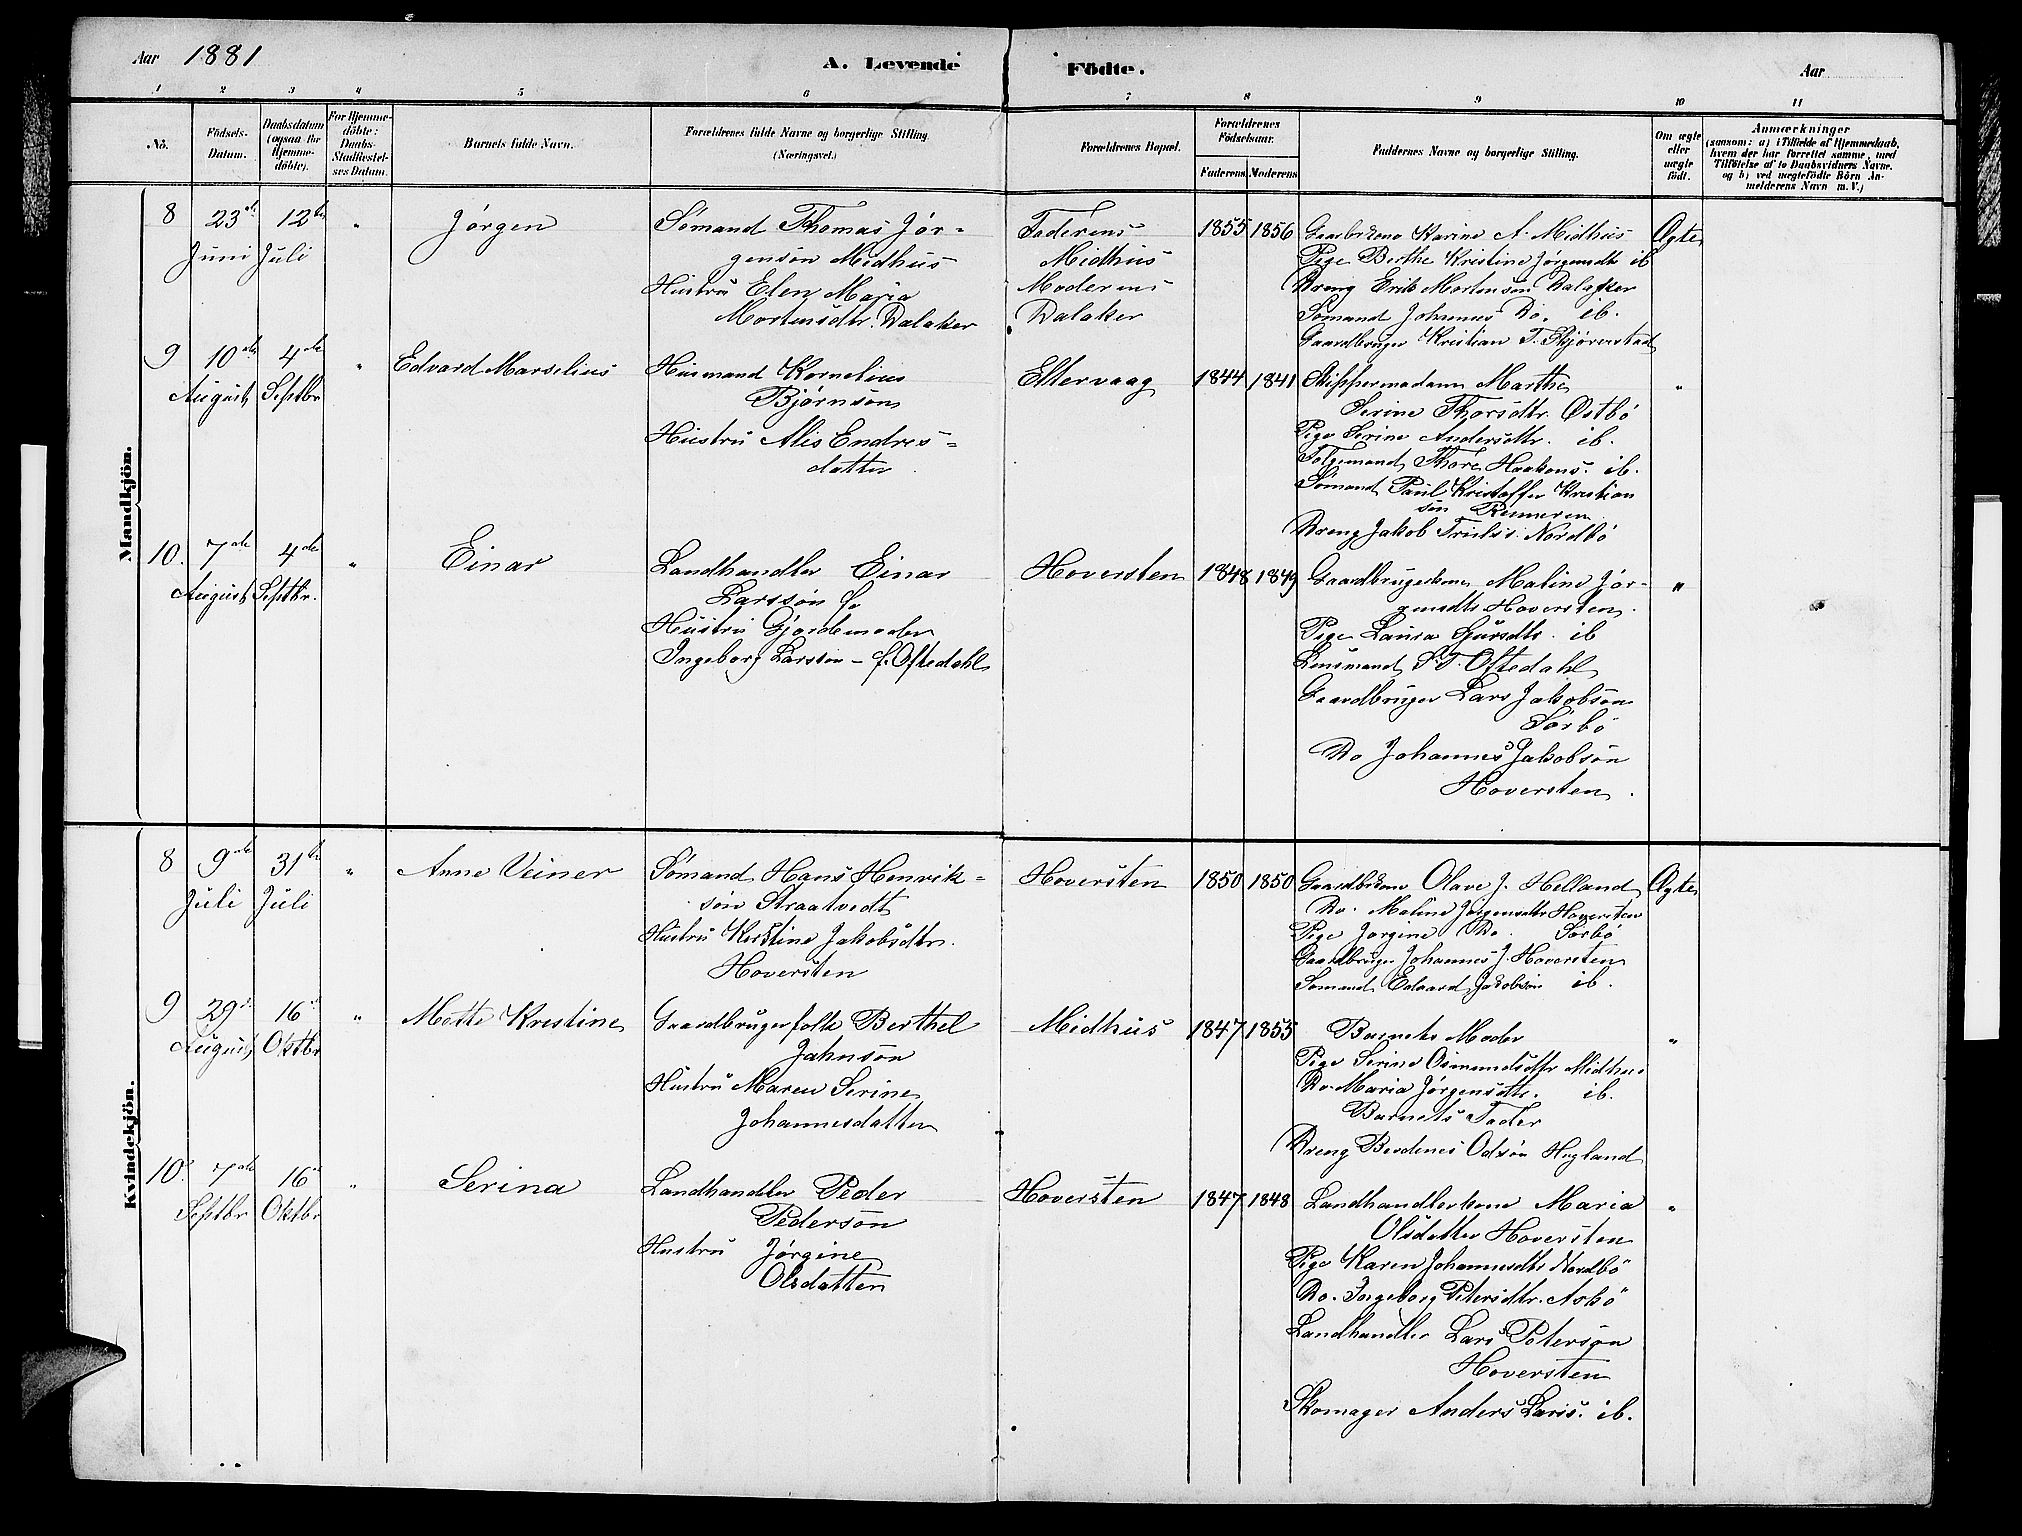 Aar 1881
A. Levende Födte.
Aar
1 2 3 4 5 6 7 8 9 10 11
No.
Födsels-Datum.
Daabsdatum (ogsaa for Hjemme-döbte).
For Hjemme-döbte: Daabs-Stadfæstelses Datum.
Barnets fulde Navn.
Forældrenes fulde Navne og borgerlige Stilling. (Næringsvei.)
Forældrenes Bopæl.
Forældrenes Födselsaar.
Faderens Moderens
Faddernes Navne og borgerlige Stilling.
Om ægte eller uægte född.
Anmærkninger
(saasom: a) i Tilfælde af Hjemmedaab,
hvem der har forrettet samme, med
Tilföielse af to Daabsvidners Navne,
og b) ved uægtefödte Börn An-
melderens Navn m. V.)
Mandkjön.
8 23de Juni 12te Juli " Jørgen
Sømand Thomas Jør-
gensøn Midhus
Hustru Elen Maria
Mortensdtr. Dalaker
Faderens
Midhus
Moderens
Dalaker
1855 1856
Gaardbkone Karine A. Midhus
Pige Berthe Kristine Jørgensdtr ib
Dreng Erik Mortensøn Dalaker
Sømand Johannes Do. ib.
Gaardbruger Kristian T.
Ægte
9 10de August 4de Septbr " Edvard Marselius
Husmand Kornelius
Bjørnsøn
Hustru Alis Endres-
datter
Eltervaag
1844 1841
Skippermadam Marthe
Serine Thorsdtr. Østbö
Pige Serine Andersdtr. ib.
Thore Haakons. ib.
Sømand Paul Kristoffer Kristian
søn Renneren
Dreng Jakob Nordbö
"
10. 7de August 4de Septbr. " Einar
Landhandler Einar
Larssøn &
Hustru Gjordemoder
Ingeborg Larssøn - f. Oftedahl
Hoversten
1848 1849
Gaardbrugerkone Maline Jør-
gensdtr Hoversten.
Pige Laura Sjursdtr. ib
Lensmand S. T. Oftedahl
Gaardbruger Lars Jakobsøn
Sörbö
Do Johannes Jakobsøn
Hoversten.
"
Kvindekjön.
8 9de Juli 31te Juli " Anne Veiner
Sømand Hans Henrik-
søn Straatvedt
Hustru Kirstine Jakobsdtr.
Hoversten
Hoversten
1850 1850
Gaardbkone Olave J. Helland
Do. Maline Jørgensdtr Hoversten
Pige Jørgine Do. Sörbö
Gaardbruger Johannes J. Hoversten
Sømand Edvard Jakobsøn ib.
Ægte
9 29de August 16de Oktbr " Mette Kristine
Gaardbrugerfolk Berthel
Jahnsøn
Hustru Maren Serine
Johannesdatter
Midhus
1847 1855
Barnets Moder
Pige Serine Osmundsdtr Midhus
Do. Maria Jørgensdtr. ib.
Barnets Fader
Dreng Odsøn Hegland
"
10. 7de Septbr 16de Oktbr " Serina
Landhandler Peder
Pedersøn
Hustru Jørgine
Olsdatter
Hoversten
1847 1848
Landhandlerkone Maria
Olsdatter Hoversten
Pige Karen Johannesdtr Nordbö
Do. Ingeborg Petersdtr. Askö
Landhandler Lars Petersøn
Hoversten
Skomager Anders Lars. ib.
"